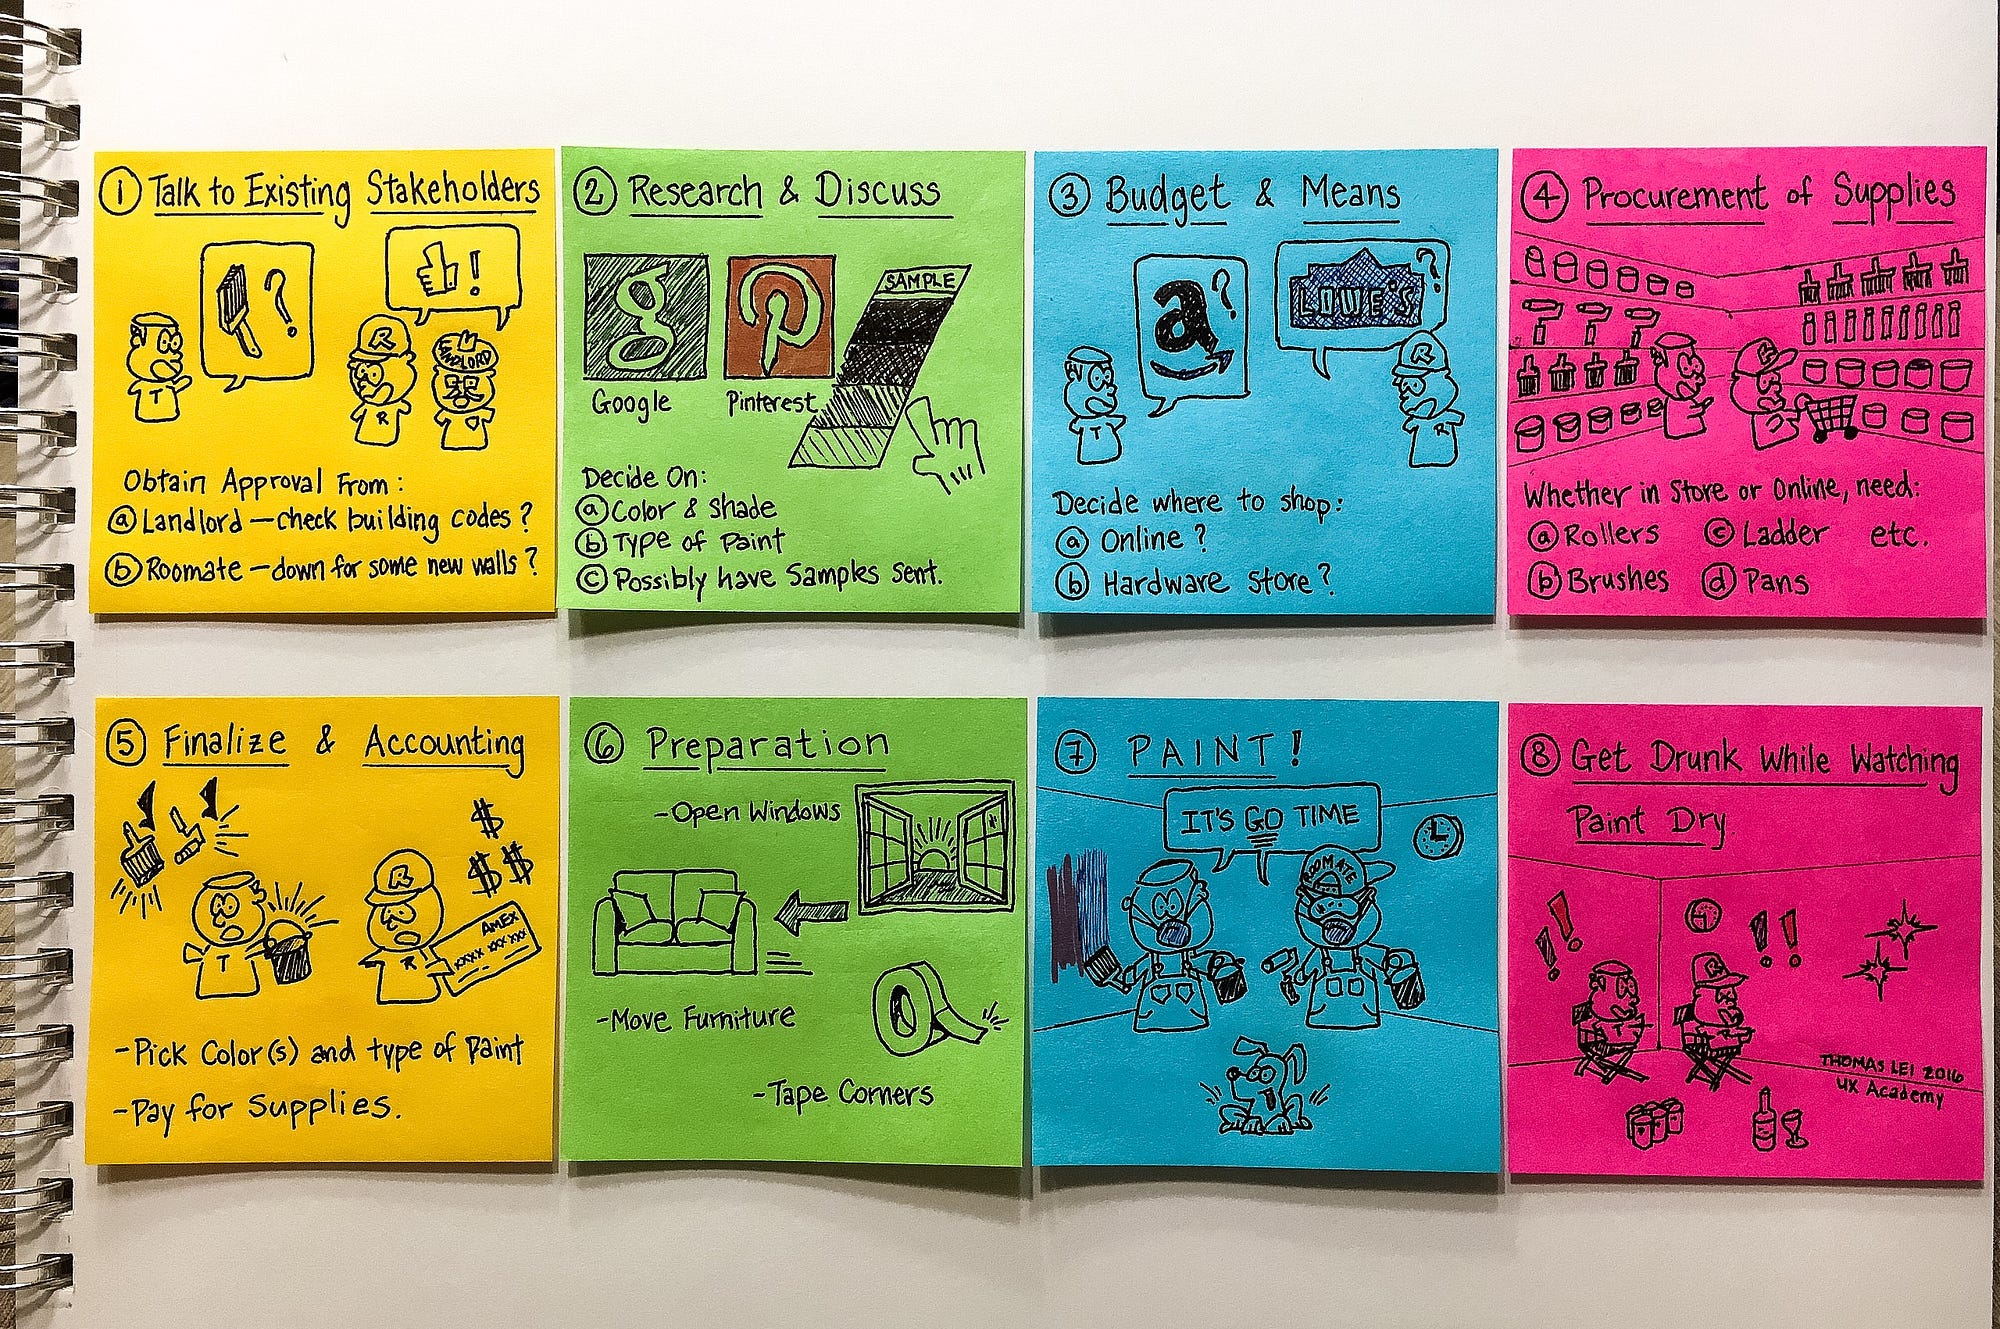 ① Talk to Existing Stakeholders
?
!
R
LANDLORD
T
R
Obtain Approval From:
ⓐ Landlord – check building codes?
ⓑ Roomate – down for some new walls?
② Research & Discuss
g
P
SAMPLE
Google
Pinterest
Decide On:
ⓐ Color & Shade
ⓑ Type of Paint
ⓒ Possibly have Samples Sent.
③ Budget & Means
a?
LOWE'S?
R
T
R
Decide where to shop:
ⓐ Online?
ⓑ Hardware Store?
④ Procurement of Supplies
Whether in Store or Online, need:
ⓐ Rollers ⓒ Ladder etc.
ⓑ Brushes ⓓ Pans
⑤ Finalize & Accounting
$
$$
R
AMEX
XXXX XXX XXX
T
R
- Pick Color(s) and type of Paint
- Pay for Supplies.
⑥ Preparation
- Open Windows
- Move Furniture
- Tape Corners
⑦ PAINT!
IT'S GO TIME
ROOMATE
⑧ Get Drunk While Watching
Paint Dry
!! !!
R
T
R
THOMAS LEI 2016
UX Academy